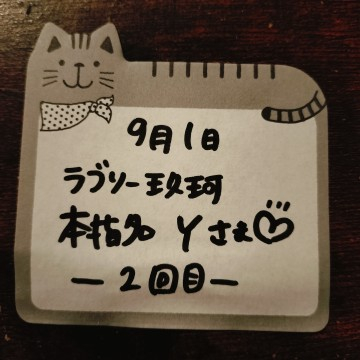 9月1日
ラブリー玖珂
本指名 Yさん♡
ー2回目ー